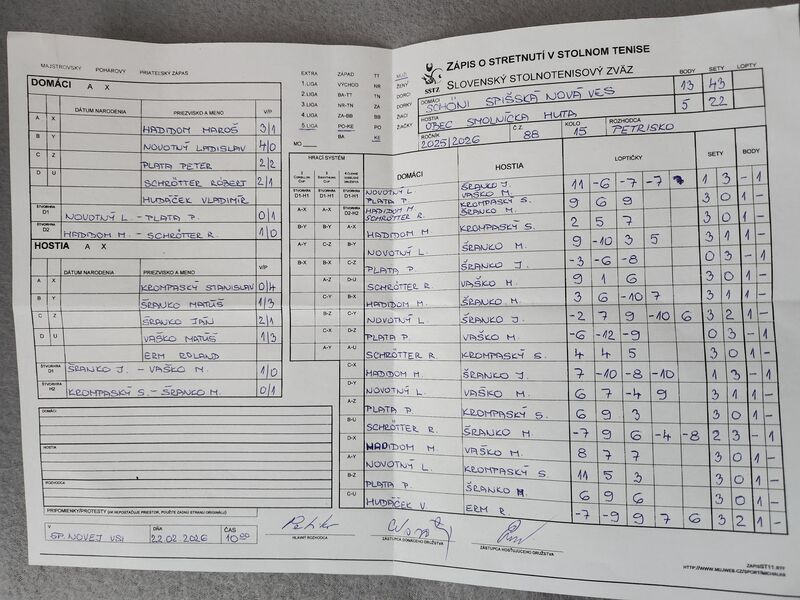 MAJSTROVSKÝ POHÁROVÝ PRIATEĽSKÝ ZÁPAS
DOMÁCI A X
DÁTUM NARODENIA PRIEZVISKO A MENO V/P
A X HADIDOM MAROŠ 3/1
B Y NOVOTNÝ LADISLAV 4/0
C Z PLATA PETER 2/2
D U SCHRÖTTER RÓBERT 2/1
HUDÁČEK VLADIMÍR
ŠTVORHRA D1 NOVOTNÝ L. - PLATA P. 0/1
ŠTVORHRA D2 HADIDOM M. - SCHRÖTTER R. 1/0
HOSTIA A X
DÁTUM NARODENIA PRIEZVISKO A MENO V/P
A X KROMPASKÝ STANISLAV 0/4
B Y ŠRANKO MATÚŠ 1/3
C Z ŠRANKO JÁN 2/1
D U VAŠKO MATÚŠ 1/3
ERM ROLAND
ŠTVORHRA ŠRANKO J. - VAŠKO M. 1/0
ŠTVORHRA H2 KROMPASKÝ S. - ŠRANKO M. 0/1
DOMÁCI
HOSTIA
ROZHODCA
PRIPOMIENKY/PROTESTY (AK NEPOSTAČUJE PRIESTOR, POUŽITE ZADNÚ STRANU ORIGINÁLU)
V SP. NOVEJ VSI DŇA 22.02.2026 ČAS 10:00
HLAVNÝ ROZHODCA
ZÁSTUPCA DOMÁCEHO DRUŽSTVA
ZÁSTUPCA HOSŤUJÚCEHO DRUŽSTVA
EXTRA ZÁPAD TT
1.LIGA VÝCHOD NR
2.LIGA BA-TT TN
3.LIGA NR-TN ZA
4.LIGA ZA-BB BB
5.LIGA PO-KE PO
BA KE
MO
MUŽI
ŽENY
DORCI
DORKY
ŽIACI
ŽIAČKY
SSTZ
ZÁPIS O STRETNUTÍ V STOLNOM TENISE
SLOVENSKÝ STOLNOTENISOVÝ ZVÄZ
BODY SETY LOPTY
DOMÁCI SCHÖNI SPIŠSKÁ NOVÁ VES 13 43
HOSTIA OBEC SMOLNÍCKA HUTA 5 22
ROČNÍK 2025/2026 ČZ 88 KOLO 15 ROZHODCA PETRISKO
HRACÍ SYSTÉM DOMÁCI HOSTIA LOPTIČKY SETY BODY
D1-H1 D1-H1 D1-H1 NOVOTNÝ L. PLATA P. ŠRANKO J. VAŠKO M. 11 -6 -7 -7 1 3 - 1
A-X A-X D2-H2 HADIDOM M SCHRÖTTER R. KROMPASKÝ S. ŠRANKO M. 9 6 9 3 0 1 -
B-Y B-Y A-X HADIDOM M KROMPASKÝ S. 2 5 7 3 0 1 -
A-Y C-Z B-Y NOVOTNÝ L. ŠRANKO M. 9 -10 3 5 3 1 1 -
B-X B-X C-Z PLATA P. ŠRANKO J. -3 -6 -8 0 3 - 1
A-Z D-U SCHRÖTTER R. VAŠKO M. 9 1 6 3 0 1 -
C-Y B-X HADIDOM M. ŠRANKO M. 3 6 -10 7 3 1 1 -
B-Z NOVOTNÝ L. ŠRANKO J. -2 7 9 -10 6 3 2 1 -
C-X D-Z PLATA P. VAŠKO M. -6 -12 -9 0 3 - 1
A-Y A-U SCHRÖTTER R. KROMPASKÝ S. 4 4 5 3 0 1 -
C-X HADIDOM M. ŠRANKO J. 7 -10 -8 -10 1 3 - 1
D-Y NOVOTNÝ L. VAŠKO M. 6 7 -4 9 3 1 1 -
A-Z PLATA P. KROMPASKÝ S. 6 9 3 3 0 1 -
B-U SCHRÖTTER R. ŠRANKO M. -7 9 6 -4 -8 2 3 - 1
D-X HADIDOM M. VAŠKO M. 8 7 7 3 0 1 -
A-Y NOVOTNÝ L. KROMPASKÝ S. 11 5 3 3 0 1 -
B-Z PLATA P. ŠRANKO M. 6 9 6 3 0 1 -
C-U HUDÁČEK V. ERM R. -7 -9 9 7 6 3 2 1 -
ZAPISST11.RTF
HTTP://WWW.MUJWEB.CZ/SPORT/MICHALHR